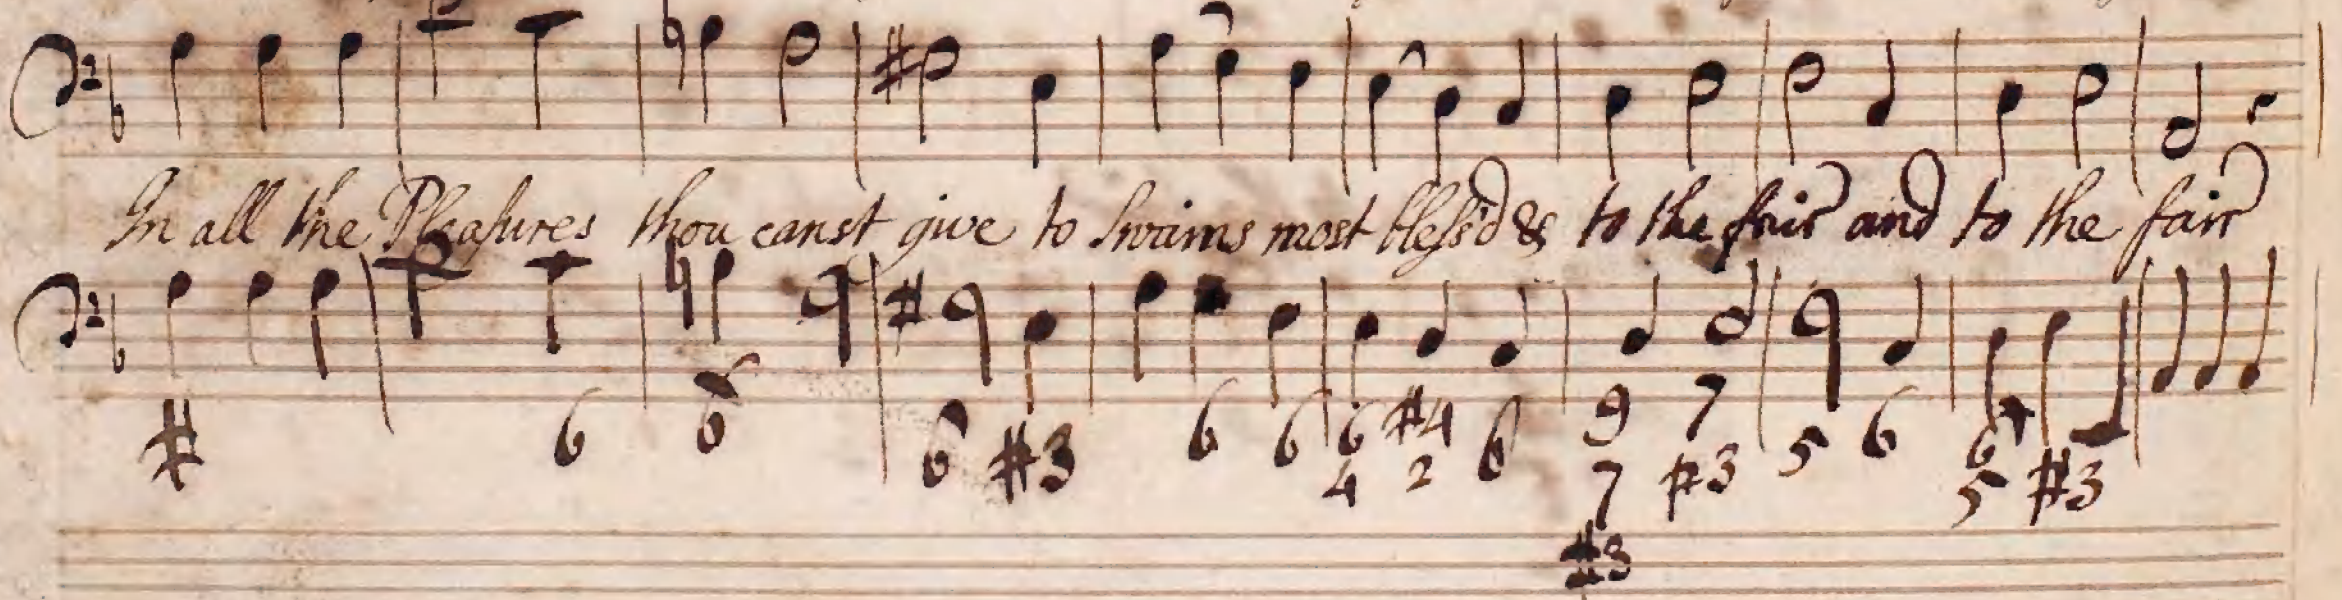 In all the Pleasures thou canst give to Swains most bless'd & to the fair and to the fair
6 6 6 #3 6 6 6 #4 6 9 7 5 6 6
4 2 7 #3 5 #3
#3